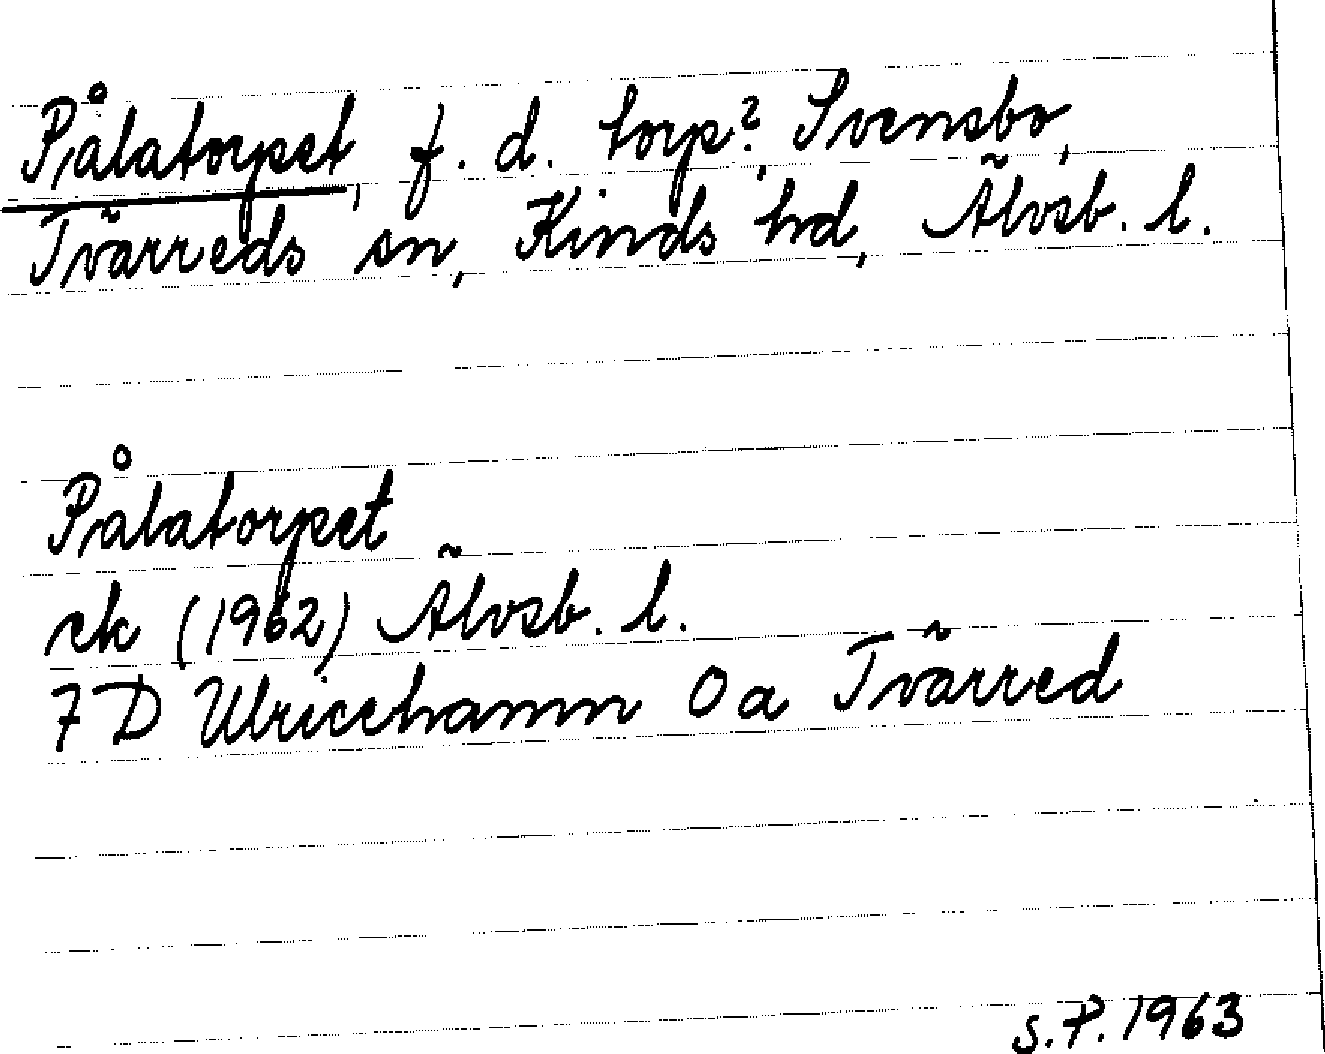 Pålatorpet, f. d. torp?, Svensbo,
Tvärreds sn, Kinds hd, Älvsb. l.
Pålatorpet
ek (1962) Älvsb. l.
7 D Ulricehamn 0 a Tvärred
S.P. 1963